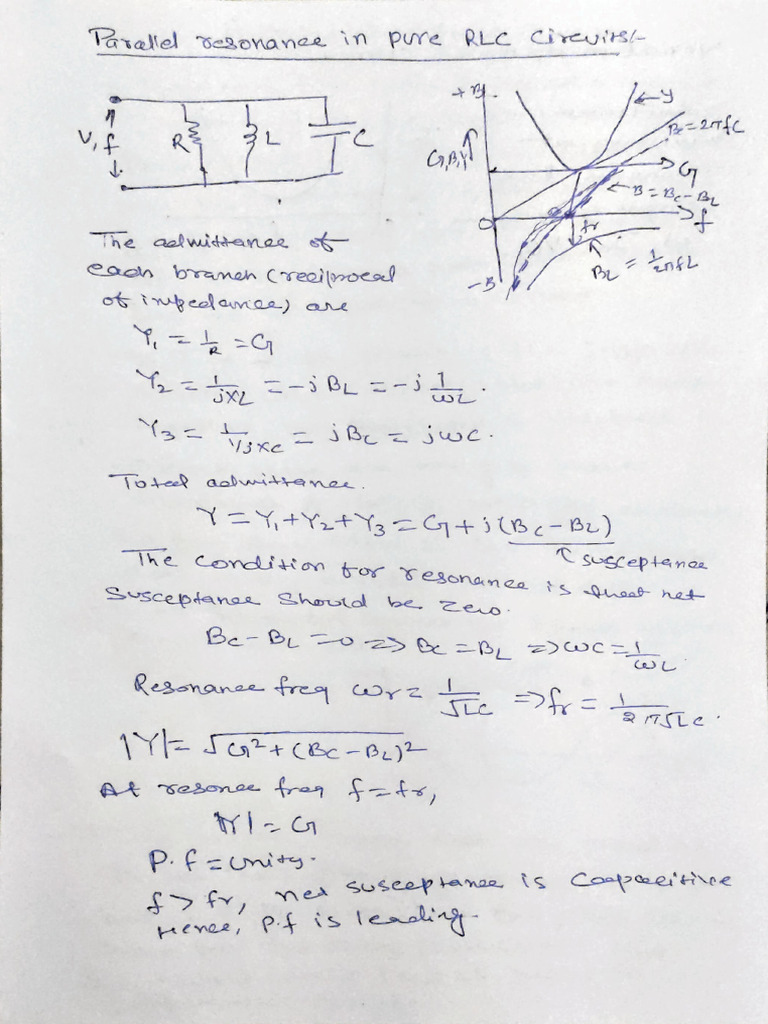 Parallel resonance in pure RLC circuits:-
V, f
R
L
C
+B
G,B,Y
Y
Bc=2πfC
G
B=Bc-BL
O
fr
f
-B
BL = 1/2πfL
The admittance of
each branch (reciprocal
of impedance) are
Y1 = 1/R = G
Y2 = 1/jXL = -jBL = -j 1/ωL.
Y3 = 1/1/jXc = jBc = jωc.
Total admittance.
Y = Y1+Y2+Y3 = G+j(Bc-BL)
↑ susceptance
The condition for resonance is that net
Susceptance Should be zero.
Bc-BL =0 => Bc =BL => ωC = 1/ωL
Resonance freq ωr = 1/√LC => fr = 1/2π√LC.
|Y| = √G²+(Bc-BL)²
At resonce freq f=fr,
|Y| = G
P.f = unity.
f > fr, net susceptance is Capacitive
Hence, P.f is leading.